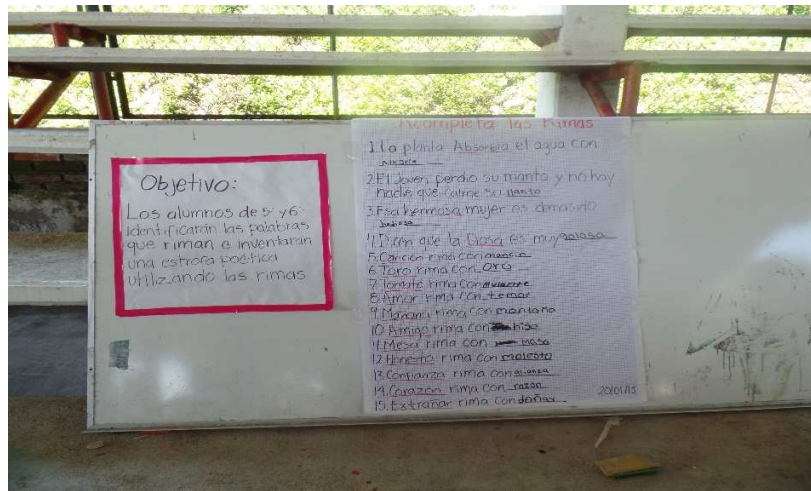 Objetivo:
Los alumnos de 5° y 6°
identificarán las palabras
que riman e inventarán
una estrofa poética
utilizando las rimas
Acompleta las Rimas
1. La planta Absorbía el agua con
2. El Joven perdio su manto y no hay
nadie que calme su llanto
3. Esa hermosa mujer es demasiado
4. Dicen que la Diosa es muy golosa
5. Canción rima con
6. Toro rima con oro
7. Tomate rima con
8. Amor rima con temor
9. Mañana rima con montaña
10. Amigo rima con higo
11. Mesa rima con masa
12. Honesto rima con molesto
13. Confianza rima con alianza
14. Corazón rima con razon
15. Extrañar rima con dañar
20/01/15